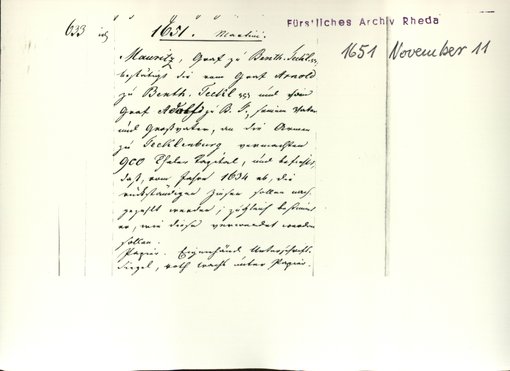 Fürstliches Archiv Rheda
633
1651. Martini.
1651 November 11
Mauritz, Graf zu Benth. Teckl.
bestätigt die vom Graf Arnold
zu Benth. Teckl. und vom
Graf Adolf zu B. T., seinem Vater
und Großvater, an die Armen
zu Tecklenburg vermachten
900 Thaler Capital, und befiehlt,
daß, vom Jahre 1634 ab, die
rückständigen Zinsen sollen nach-
gezahlt werden; zugleich bestimmt
er, wie diese verwendet werden
sollen.
Papier. Eigenhänd. Unterschrift.
Siegel, roth Wachs unter Papier.